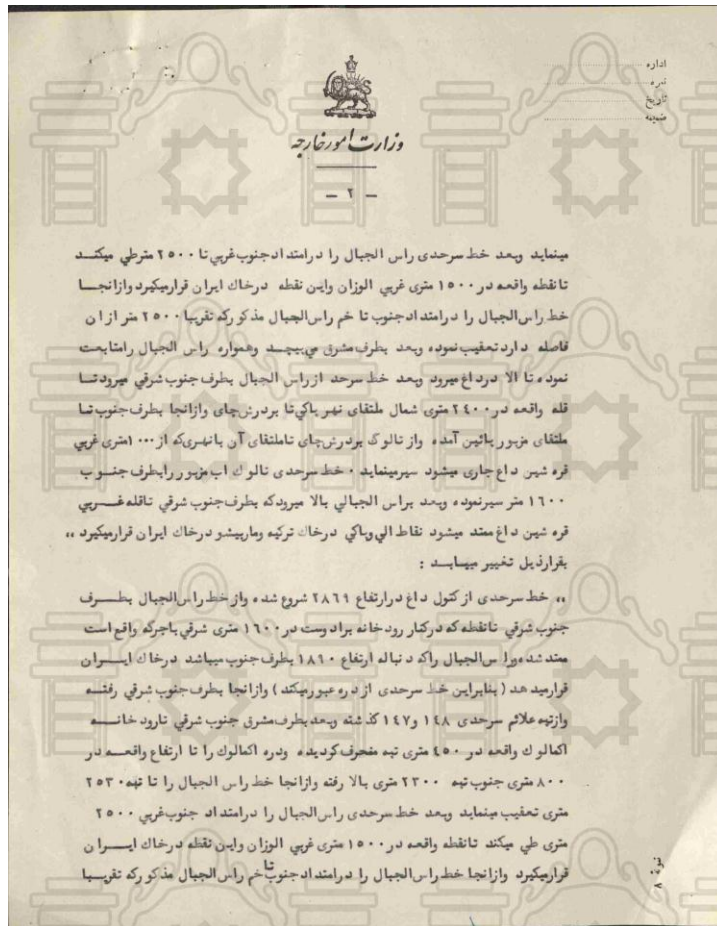 اداره
نمره
تاریخ
ضمیمه
وزارت امور خارجه
- ۲ -
مینماید وبعد خط سرحدی راس الجبال را درامتداد جنوب غربی تا ۲۵۰۰ مترطی میکند
تانقطه واقعه در ۱۵۰۰ متری غربی الوزان واین نقطه درخاك ایران قرارمیگیرد وازانجا
خط راس الجبال را درامتداد جنوب تا خم راس الجبال مذکور که تقریبا ۲۵۰۰ متر ازان
فاصله دارد تعقیب نموده وبعد بطرف مشرق می پیچد وهمواره راس الجبال رامتابعت
نموده تا الا درداغ میرود وبعد خط سرحد از راس الجبال بطرف جنوب شرقی میرود تا
قله واقعه در ۲۴۰۰ متری شمال ملتقای نهر باکی تا بردرش چای وازانجا بطرف جنوب تا
ملتقای مزبور پائین آمده واز تالوگ بردرش چای تاملتقای آن بانهری که از ۱۰۰۰ متری غربی
قره شین داغ جاری میشود سیرمینماید ۰ خط سرحدی تالوك اب مزبور رابطرف جنوب
۱۶۰۰ متر سیرنموده وبعد براس الجبالی بالا میرود که بطرف جنوب شرقی تاقله غربی
قره شین داغ ممتد میشود نقاط الی وباکی درخاك ترکیه وماربیشو درخاك ایران قرارمیگیرد ،،
بقرارذیل تغییر مییابد :
،، خط سرحدی از کتول داغ درارتفاع ۲۸۶۹ شروع شده واز خط راس الجبال بطرف
جنوب شرقی تانقطه که درکنار رودخانه برادوست در ۱۶۰۰ متری شرقی باجرگه واقع است
ممتد شده وراس الجبال راکه دنباله ارتفاع ۱۸۶۰ بطرف جنوب میباشد درخاك ایران
قرارمیدهد ( بنابراین خط سرحدی از دره عبورمیکند ) وازانجا بطرف جنوب شرقی رفته
وازتپه علائم سرحدی ۱۴۸ و ۱۴۷ گذشته وبعد بطرف مشرق جنوب شرقی تارودخانه
اکمالوك واقعه در ۴۵۰ متری تپه منحرف گردیده ودره اکمالوك را تا ارتفاع واقعه در
۸۰۰ متری جنوب تپه ۲۳۰۰ متری بالا رفته وازانجا خط راس الجبال را تا تپه ۲۵۳۰
متری تعقیب مینماید وبعد خط سرحدی راس الجبال را درامتداد جنوب غربی ۲۵۰۰
متری طی میکند تانقطه واقعه در ۱۵۰۰ متری غربی الوزان واین نقطه درخاك ایران
قرارمیگیرد وازانجا خط راس الجبال را درامتداد جنوب تا خم راس الجبال مذکور که تقریبا
نمونه ۸